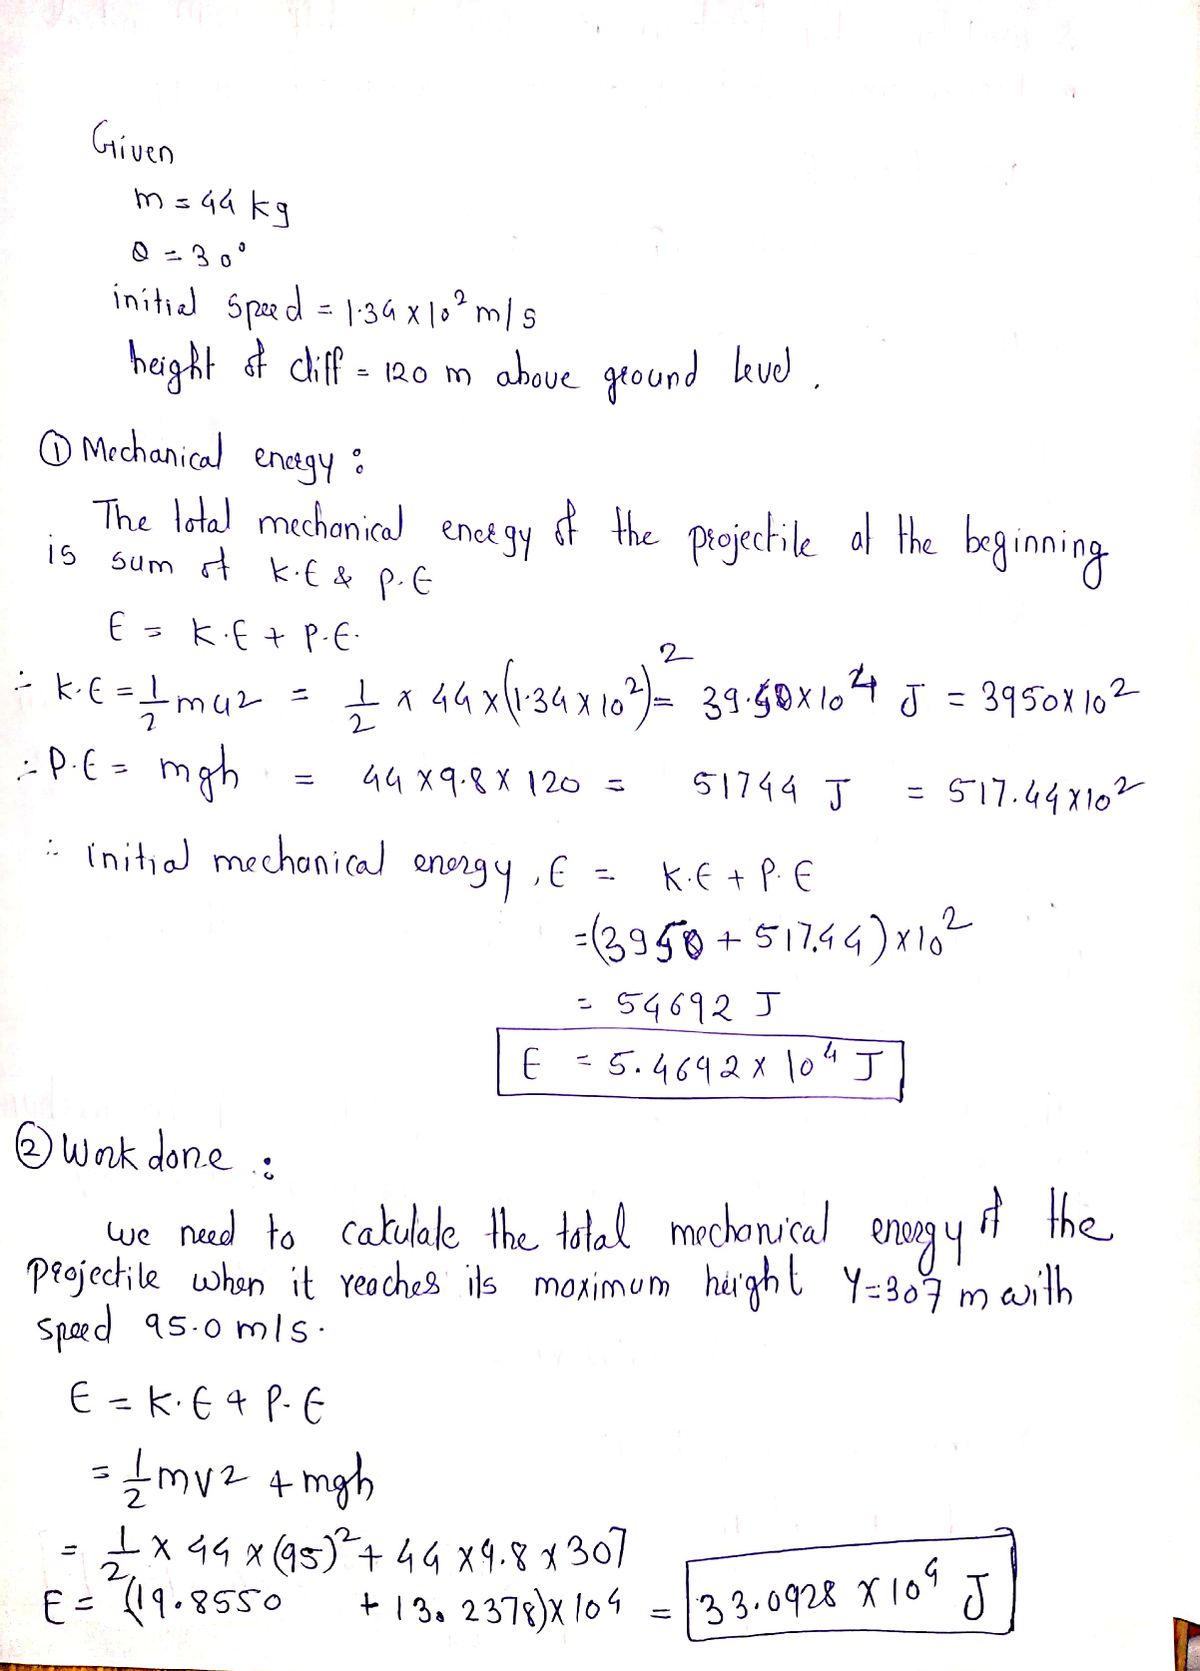 Given
m = 44 kg
θ = 30°
initial speed = 1.34 x 10² m/s
height of cliff = 120 m above ground level.
① Mechanical energy :
The total mechanical energy of the projectile at the beginning
is sum of K.E & P.E
E = K.E + P.E.
∴ K.E = 1/2 mu2 = 1/2 x 44 x (1.34 x 10²)² = 39.50 x 10⁴ J = 3950 x 10²
∴ P.E = mgh = 44 x 9.8 x 120 = 51744 J = 517.44 x 10²
∴ initial mechanical energy, E = K.E + P.E
= (3950 + 517.44) x 10²
= 54692 J
E = 5.4692 x 10⁴ J
② Work done :
we need to calculate the total mechanical energy of the
Projectile when it reaches its maximum height Y=307 m with
speed 95.0 m/s.
E = K.E + P.E
= 1/2 mv2 + mgh
= 1/2 x 44 x (95)² + 44 x 9.8 x 307
E = (19.8550 + 13.2378) x 10⁴ = 33.0928 x 10⁴ J